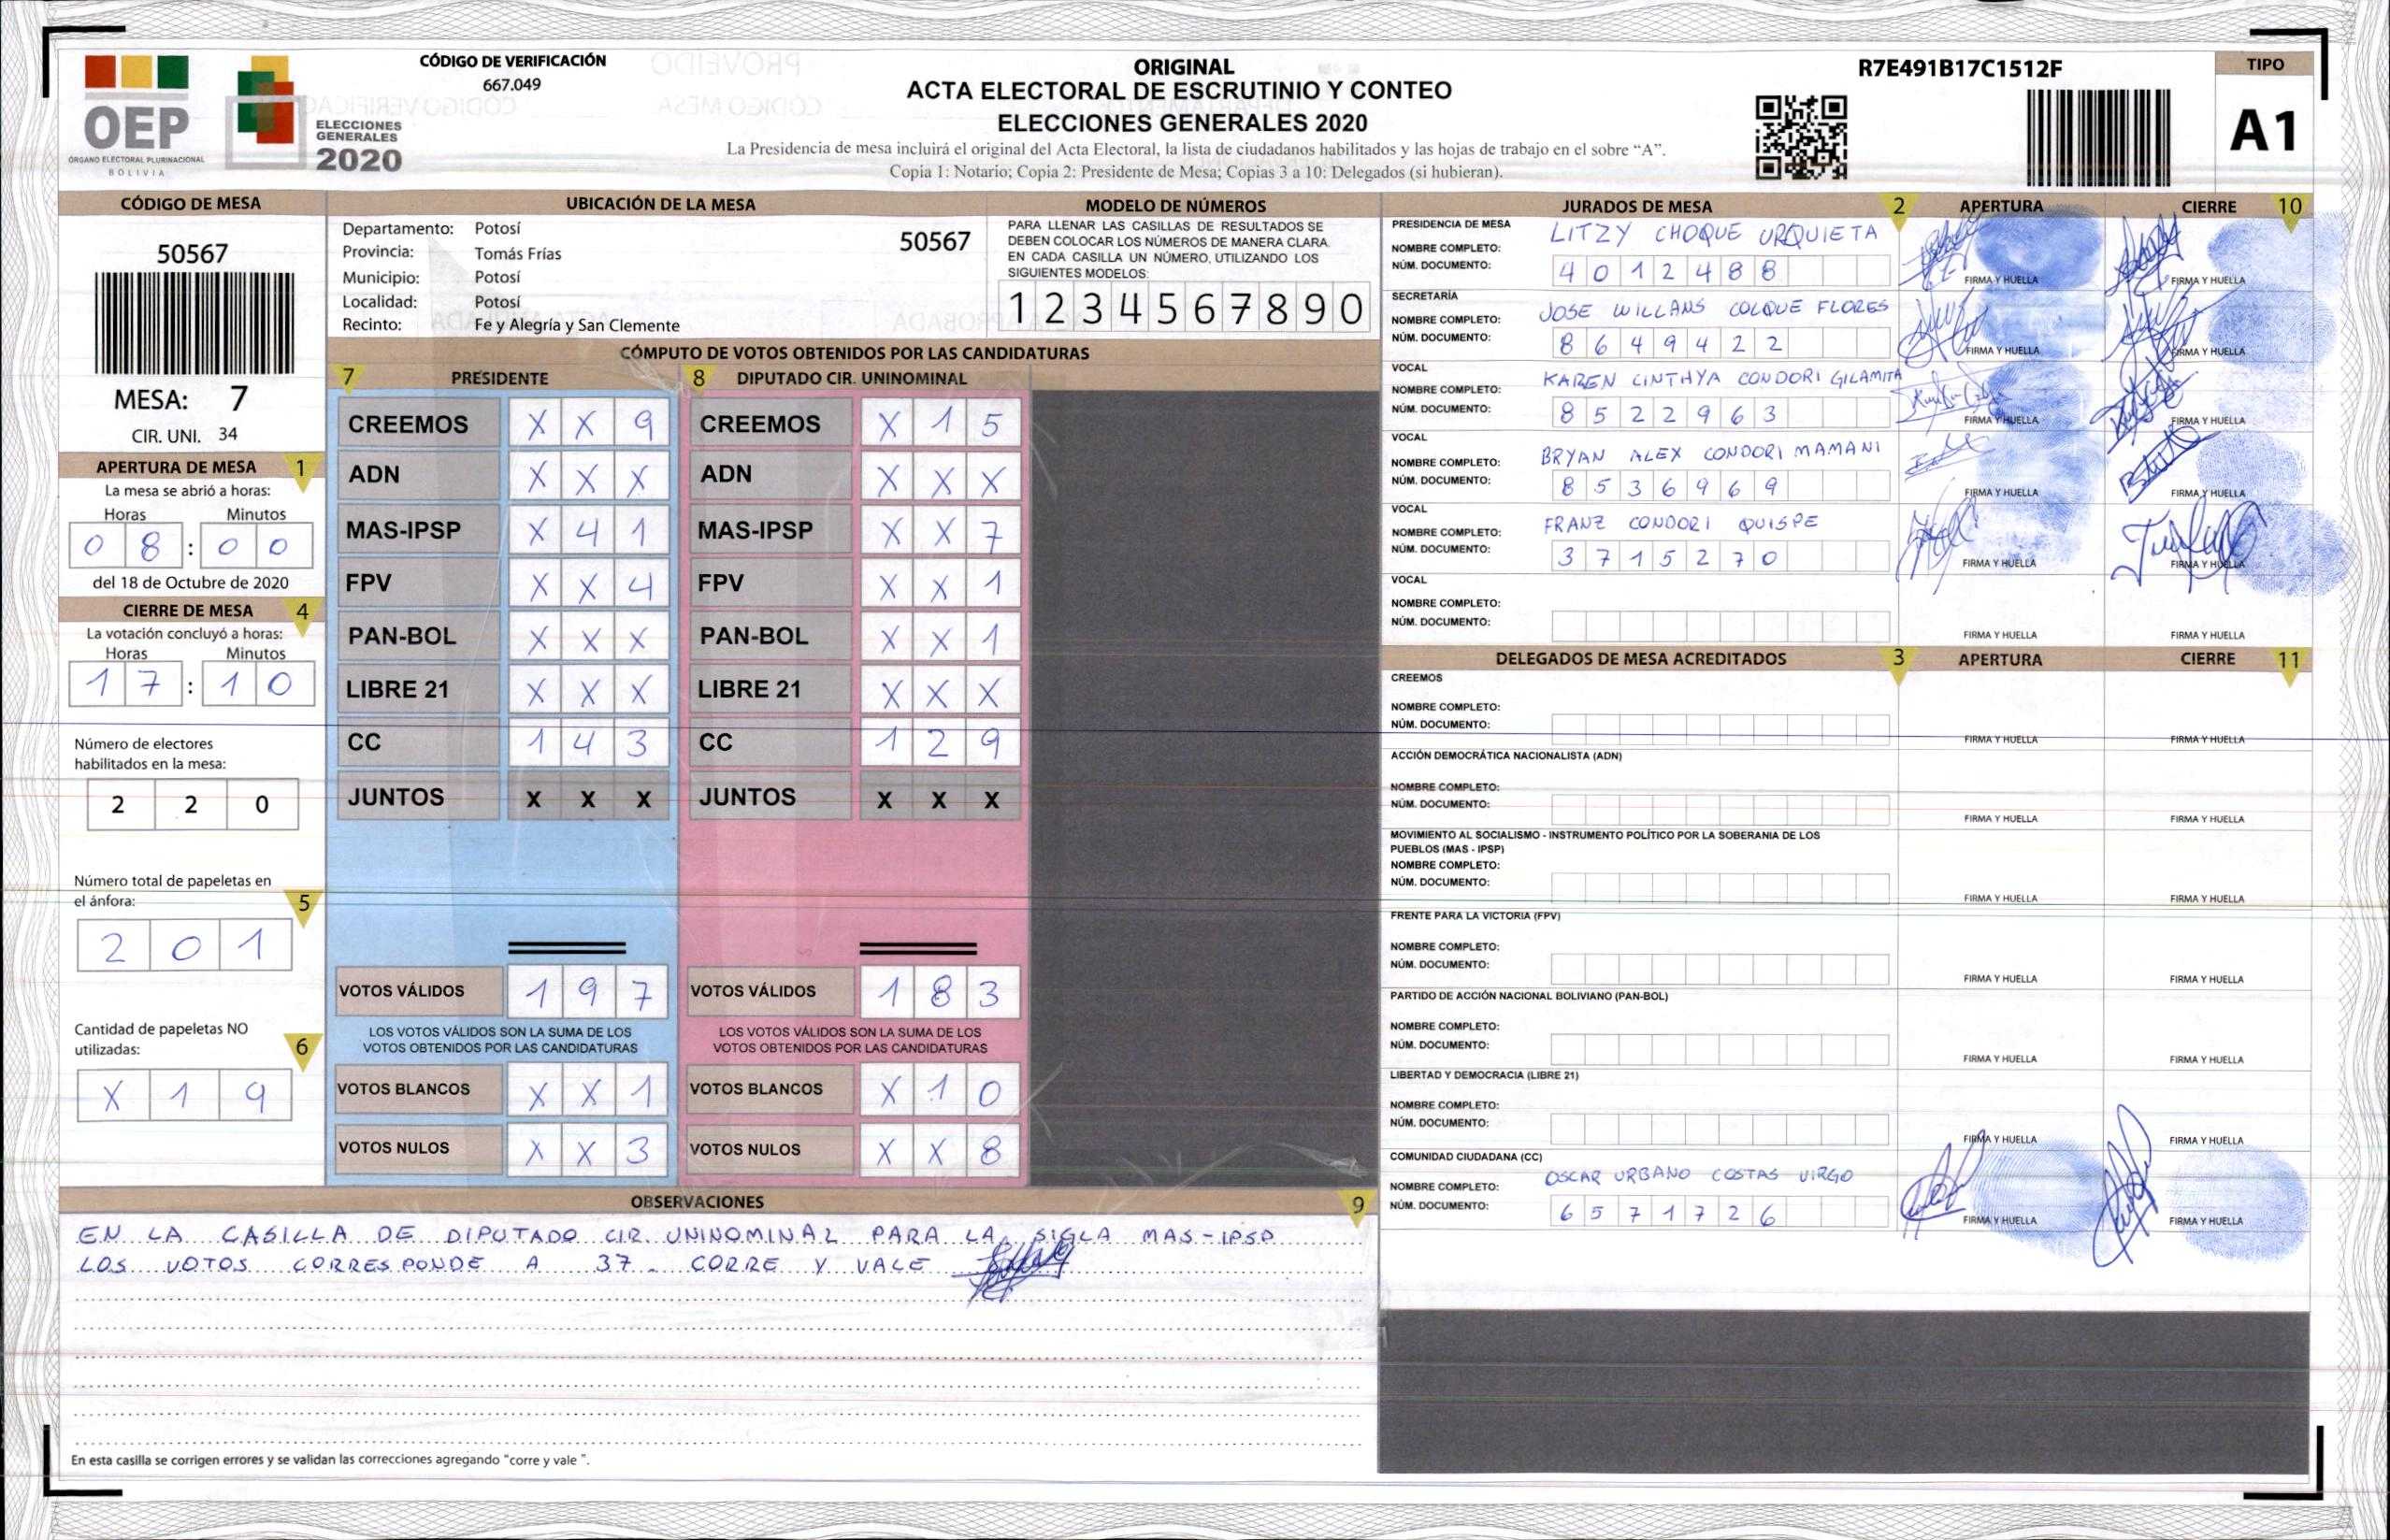 OEP
ÓRGANO ELECTORAL PLURINACIONAL
BOLIVIA
ELECCIONES
GENERALES
2020
CÓDIGO DE VERIFICACIÓN
667.049
ORIGINAL
ACTA ELECTORAL DE ESCRUTINIO Y CONTEO
ELECCIONES GENERALES 2020
La Presidencia de mesa incluirá el original del Acta Electoral, la lista de ciudadanos habilitados y las hojas de trabajo en el sobre “A”.
Copia 1: Notario; Copia 2: Presidente de Mesa; Copias 3 a 10: Delegados (si hubieran).
R7E491B17C1512F
TIPO
A1
CÓDIGO DE MESA
50567
MESA: 7
CIR. UNI. 34
APERTURA DE MESA 1
La mesa se abrió a horas:
Horas Minutos
0 8 : 0 0
del 18 de Octubre de 2020
CIERRE DE MESA 4
La votación concluyó a horas:
Horas Minutos
1 7 : 1 0
Número de electores
habilitados en la mesa:
2 2 0
Número total de papeletas en
el ánfora: 5
2 0 1
Cantidad de papeletas NO
utilizadas: 6
X 1 9
UBICACIÓN DE LA MESA
Departamento: Potosí
50567
Provincia: Tomás Frías
Municipio: Potosí
Localidad: Potosí
Recinto: Fe y Alegría y San Clemente
MODELO DE NÚMEROS
PARA LLENAR LAS CASILLAS DE RESULTADOS SE
DEBEN COLOCAR LOS NÚMEROS DE MANERA CLARA.
EN CADA CASILLA UN NÚMERO, UTILIZANDO LOS
SIGUIENTES MODELOS:
1 2 3 4 5 6 7 8 9 0
CÓMPUTO DE VOTOS OBTENIDOS POR LAS CANDIDATURAS
7 PRESIDENTE 8 DIPUTADO CIR. UNINOMINAL
CREEMOS X X 9 CREEMOS X 1 5
ADN X X X ADN X X X
MAS-IPSP X 4 1 MAS-IPSP X X 7
FPV X X 4 FPV X X 1
PAN-BOL X X X PAN-BOL X X 1
LIBRE 21 X X X LIBRE 21 X X X
CC 1 4 3 CC 1 2 9
JUNTOS X X X JUNTOS X X X
VOTOS VÁLIDOS 1 9 7 VOTOS VÁLIDOS 1 8 3
LOS VOTOS VÁLIDOS SON LA SUMA DE LOS LOS VOTOS VÁLIDOS SON LA SUMA DE LOS
VOTOS OBTENIDOS POR LAS CANDIDATURAS VOTOS OBTENIDOS POR LAS CANDIDATURAS
VOTOS BLANCOS X X 1 VOTOS BLANCOS X 1 0
VOTOS NULOS X X 3 VOTOS NULOS X X 8
OBSERVACIONES 9
EN LA CASILLA DE DIPUTADO CIR. UNINOMINAL PARA LA SIGLA MAS-IPSP
LOS VOTOS CORRESPONDE A 37. CORRE Y VALE
En esta casilla se corrigen errores y se validan las correcciones agregando “corre y vale ”.
JURADOS DE MESA 2 APERTURA CIERRE 10
PRESIDENCIA DE MESA
NOMBRE COMPLETO: LITZY CHOQUE URQUIETA
NÚM. DOCUMENTO: 4 0 1 2 4 8 8
FIRMA Y HUELLA FIRMA Y HUELLA
SECRETARÍA
NOMBRE COMPLETO: JOSE WILLANS COLQUE FLORES
NÚM. DOCUMENTO: 8 6 4 9 4 2 2
FIRMA Y HUELLA FIRMA Y HUELLA
VOCAL
NOMBRE COMPLETO: KAREN CINTHYA CONDORI GILAMITA
NÚM. DOCUMENTO: 8 5 2 2 9 6 3
FIRMA Y HUELLA FIRMA Y HUELLA
VOCAL
NOMBRE COMPLETO: BRYAN ALEX CONDORI MAMANI
NÚM. DOCUMENTO: 8 5 3 6 9 6 9
FIRMA Y HUELLA FIRMA Y HUELLA
VOCAL
NOMBRE COMPLETO: FRANZ CONDORI QUISPE
NÚM. DOCUMENTO: 3 7 1 5 2 7 0
FIRMA Y HUELLA FIRMA Y HUELLA
VOCAL
NOMBRE COMPLETO:
NÚM. DOCUMENTO:
FIRMA Y HUELLA FIRMA Y HUELLA
DELEGADOS DE MESA ACREDITADOS 3 APERTURA CIERRE 11
CREEMOS
NOMBRE COMPLETO:
NÚM. DOCUMENTO:
FIRMA Y HUELLA FIRMA Y HUELLA
ACCIÓN DEMOCRÁTICA NACIONALISTA (ADN)
NOMBRE COMPLETO:
NÚM. DOCUMENTO:
FIRMA Y HUELLA FIRMA Y HUELLA
MOVIMIENTO AL SOCIALISMO - INSTRUMENTO POLÍTICO POR LA SOBERANIA DE LOS
PUEBLOS (MAS - IPSP)
NOMBRE COMPLETO:
NÚM. DOCUMENTO:
FIRMA Y HUELLA FIRMA Y HUELLA
FRENTE PARA LA VICTORIA (FPV)
NOMBRE COMPLETO:
NÚM. DOCUMENTO:
FIRMA Y HUELLA FIRMA Y HUELLA
PARTIDO DE ACCIÓN NACIONAL BOLIVIANO (PAN-BOL)
NOMBRE COMPLETO:
NÚM. DOCUMENTO:
FIRMA Y HUELLA FIRMA Y HUELLA
LIBERTAD Y DEMOCRACIA (LIBRE 21)
NOMBRE COMPLETO:
NÚM. DOCUMENTO:
FIRMA Y HUELLA FIRMA Y HUELLA
COMUNIDAD CIUDADANA (CC)
NOMBRE COMPLETO: OSCAR URBANO COSTAS VIRGO
NÚM. DOCUMENTO: 6 5 7 1 7 2 6
FIRMA Y HUELLA FIRMA Y HUELLA